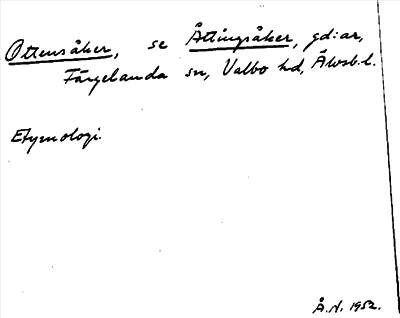 Ottensåker, se Åttingsåker, gd:ar,
Färgelanda sn, Valbo hd, Älvsb.l.
Etymologi.
Å.N. 1952.